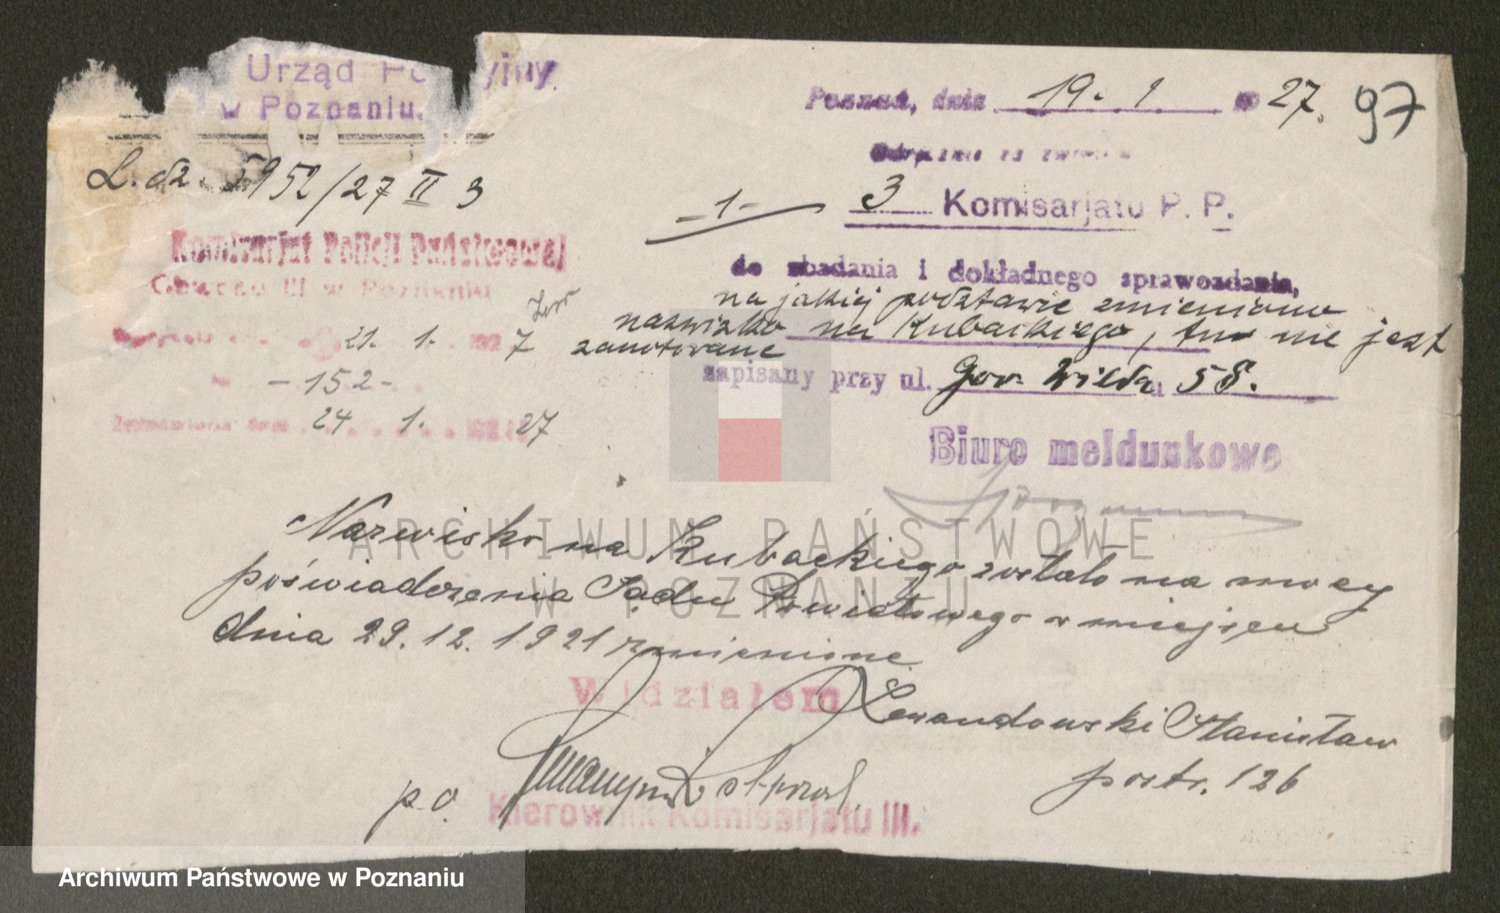 Urząd Po yjny
w Poznaniu.
L. dz. 5952/27 II 3
Komisarjat Policji Państwowej
Obwodu III w Poznaniu
21. 1. 192 7
- 152 -
dnia 24. 1. 27
Poznań, dnia 19. 1. 27.
97
Odręcznie za zwrotem
- 1 -
3 Komisarjatu P. P.
do zbadania i dokładnego sprawozdania,
na jakiej podstawie zmieniono
nazwisko na Kubackiego, tu nie jest
zanotowane
zapisany przy ul. Gór. Wilda 58.
Biuro meldunkowe
Nazwisko na Kubackiego zostało na mocy
poświadczenia Sądu Powiatowego w miejscu
dnia 29. 12. 1921 zmienione
Widziałem
Lewandowski Stanisław
postr. 126
p. o.
Kierownik Komisarjatu III.
ARCHIWUM PAŃSTWOWE
W POZNANIU
Archiwum Państwowe w Poznaniu